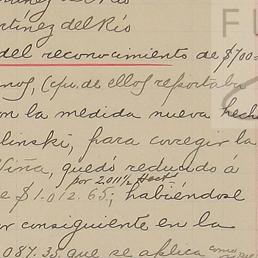 rtinez del Río
del reconocimiento de $700=
nos, (cfu. de ellos reportaba
on la medida nueva hecha
linski, para corregir la
Viña, quedó reducido á
por 2,011½ Hect
e $1.012.65; habiéndose
r consiguiente en la
087.35 que se aplica como